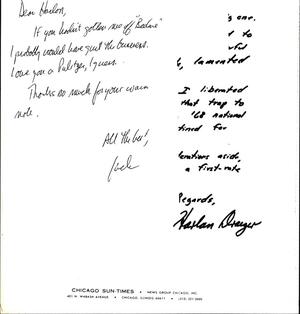 Dear Harlan,
If you hadn't gotten me off "Backtalk"
I probably would have quit the business.
I owe you a Pulitzer, I guess.
Thanks so much for your warm
note.
All the best,
Jack
's one.
t to
, lamented
I liberated
that trap to
'68 national
tired far
erations aside,
a first-rate
Regards,
Harlan Draeger
CHICAGO SUN-TIMES • NEWS GROUP CHICAGO, INC.
401 N. WABASH AVENUE • CHICAGO, ILLINOIS 60611 • (312) 321-3000